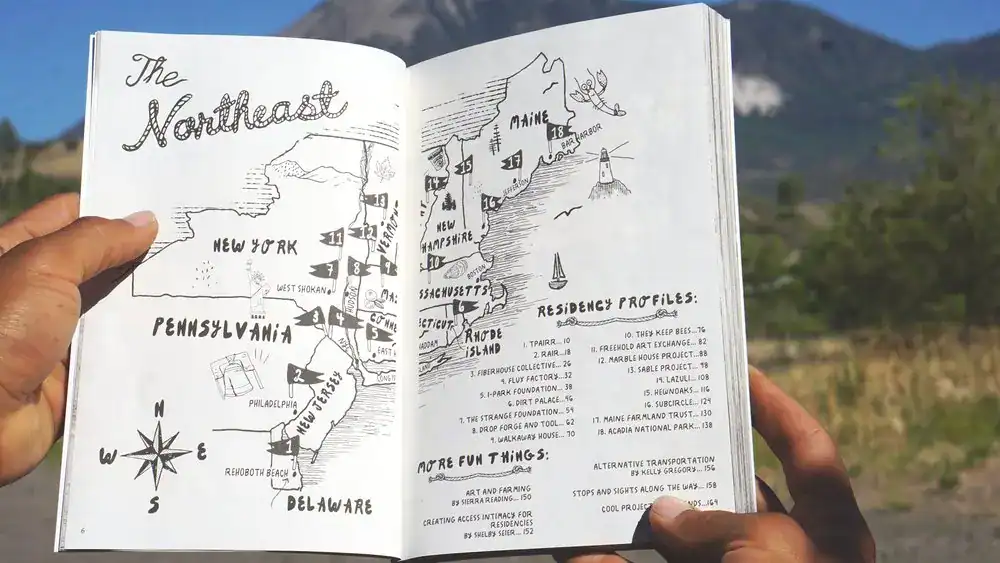 The
Northeast
NEW YORK
WEST SHOKAN
HUDSON
VERMONT
PENNSYLVANIA
PHILADELPHIA
NEW JERSEY
REHOBOTH BEACH
DELAWARE
N
W E
S
1
2
3 4
5
7 8 9
11 12
13
6
MAINE
18
BAR HARBOR
17
JEFFERSON
15
14
16
NEW
HAMPSHIRE
10
BOSTON
SSACHUSETTS
6
ECTICUT
HADDAM
RHODE
ISLAND
RESIDENCY PROFILES:
1. TPAIRR... 10
2. RAIR...18
3. FIBERHOUSE COLLECTIVE... 26
4. FLUX FACTORY... 32
5. I-PARK FOUNDATION... 38
6. DIRT PALACE...46
7. THE STRANGE FOUNDATION... 54
8. DROP FORGE AND TOOL... 62
9. WALKAWAY HOUSE... 70
10. THEY KEEP BEES...76
11. FREEHOLD ART EXCHANGE... 82
12. MARBLE HOUSE PROJECT... 88
13. SABLE PROJECT... 98
14. LAZULI... 108
15. HEWNOAKS... 116
16. SUBCIRCLE... 124
17. MAINE FARMLAND TRUST... 130
18. ACADIA NATIONAL PARK... 138
MORE FUN THINGS:
ART AND FARMING
BY SIERRA READING... 150
CREATING ACCESS INTIMACY FOR
RESIDENCIES
BY SHELBY SEIER... 152
ALTERNATIVE TRANSPORTATION
BY KELLY GREGORY... 156
STOPS AND SIGHTS ALONG THE WAY... 158
COOL PROJECT NDS...164